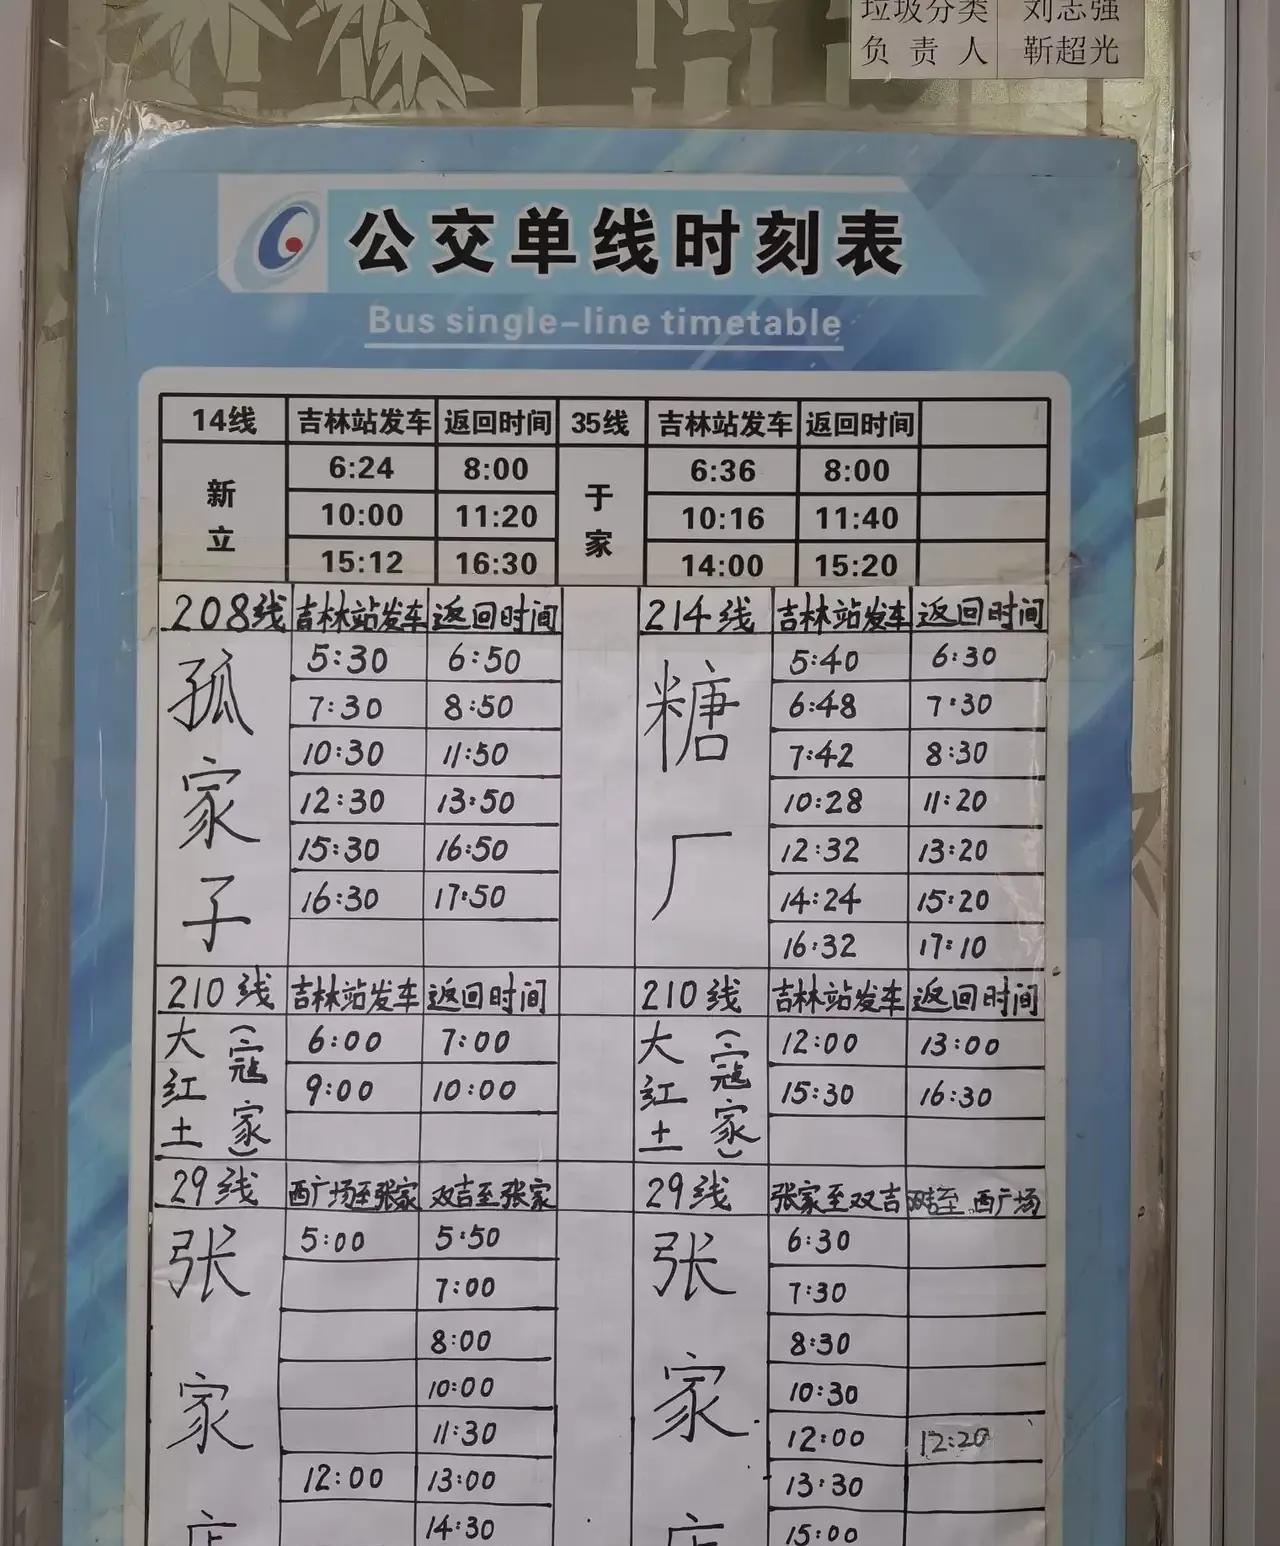 垃圾分类 刘志强
负责人 靳超光
公交单线时刻表
Bus single-line timetable
14线 吉林站发车 返回时间 35线 吉林站发车 返回时间
新立 6:24 8:00 于家 6:36 8:00
10:00 11:20 10:16 11:40
15:12 16:30 14:00 15:20
208线 吉林站发车 返回时间 214线 吉林站发车 返回时间
孤家子 5:30 6:50 糖厂 5:40 6:30
7:30 8:50 6:48 7:30
10:30 11:50 7:42 8:30
12:30 13:50 10:28 11:20
15:30 16:50 12:32 13:20
16:30 17:50 14:24 15:20
16:32 17:10
210线 吉林站发车 返回时间 210线 吉林站发车 返回时间
大红土(寇家) 6:00 7:00 大红土(寇家) 12:00 13:00
9:00 10:00 15:30 16:30
29线 西广场至张家 双吉至张家 29线 张家至双吉 双吉至西广场
张家店 5:00 5:50 张家店 6:30
7:00 7:30
8:00 8:30
10:00 10:30
11:30 12:00 12:20
12:00 13:00 13:30
14:30 15:00